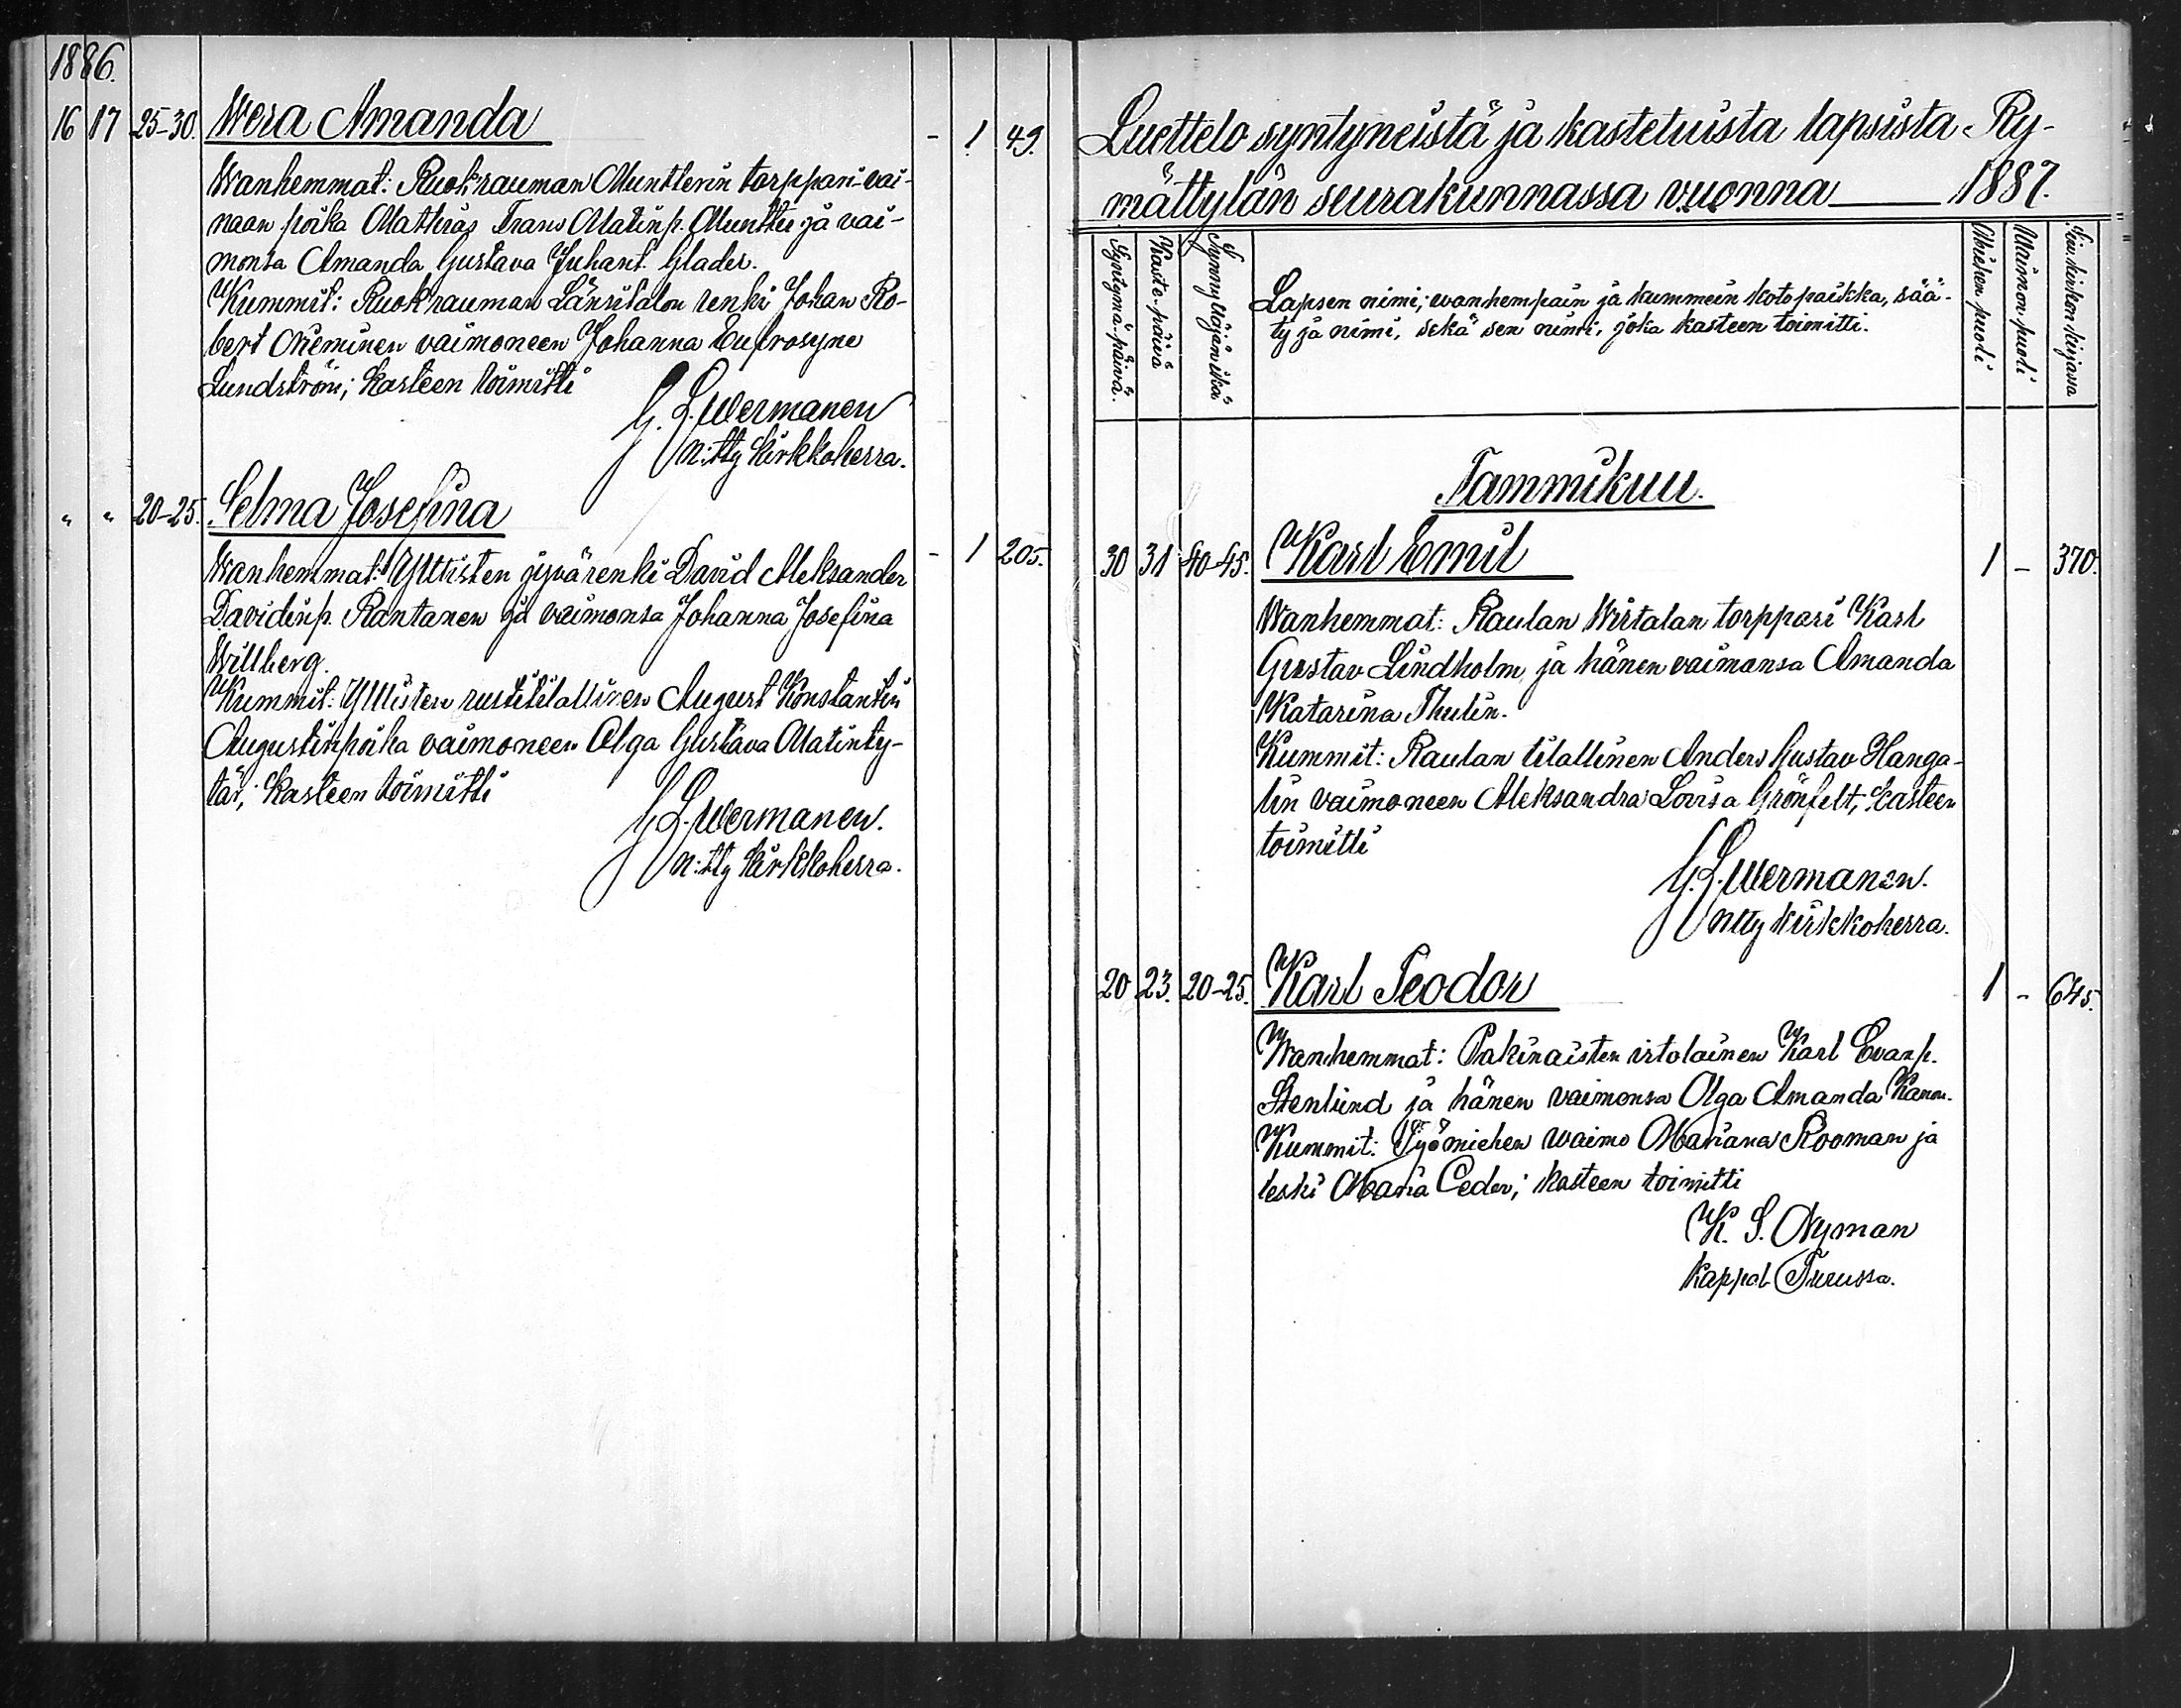 1886.
16 17 25-30. Wera Amanda - 1 49.
Wanhemmat: Ruokrauman Muntterin torppari-vai-
naan poika Mathias Frans Matinp. Munttu ja vai-
monsa Amanda Gustava Juhant. Glader.
Kummit: Ruokrauman Länsitalon renki Johan Ro-
bert Nieminen vaimoneen Johanna Eufrosyne
Lundström; kasteen toimitti
G. L. Wermanen
n:tty kirkkoherra.
" " 20-25. Selma Josefina - 1 205.
Wanhemmat: Ylttisten jyvärenki David Aleksander
Davidinp. Rantanen ja vaimonsa Johanna Josefina
Willberg.
Kummit: Ylttisten rustitilallinen August Konstantin
Augustinpoika vaimoneen Olga Gustava Matinty-
tär; kasteen toimitti
G. L. Wermanen.
n:tty kirkkoherra.
Luettelo syntyneistä ja kastetuista lapsista Ry-
mättylän seurakunnassa vuonna 1887.
Syntymä-päivä.
Kaste-päivä
Synnyttäjän ikä
Lapsen nimi; wanhempain ja kummein kotopaikka, sää-
ty ja nimi, sekä sen nimi, joka kasteen toimitti.
Miehen puoli
Waimon puoli
Siv. kirkonkirjassa
Tammikuu.
30 31 40-45. Karl Emil 1 - 370.
Wanhemmat: Raulan Wirtalan torppari Karl
Gustav Lindholm ja hänen vaimonsa Amanda
Katarina Thulin.
Kummit: Raulan tilallinen Anders Gustav Hanga-
lin vaimoneen Aleksandra Lovisa Grönfelt; kasteen
toimitti
G. L. Wermanen.
ntty kirkkoherra.
20 23. 20-25. Karl Teodor 1 - 645.
Wanhemmat: Pakinaisten irtolainen Karl Evanp.
Stenlund ja hänen vaimonsa Olga Amanda
Kummit: Työmiehen waimo Mariana Rooman ja
leski Maria Ceder; kasteen toimitti
K. S. Nyman
kappal. Turussa.